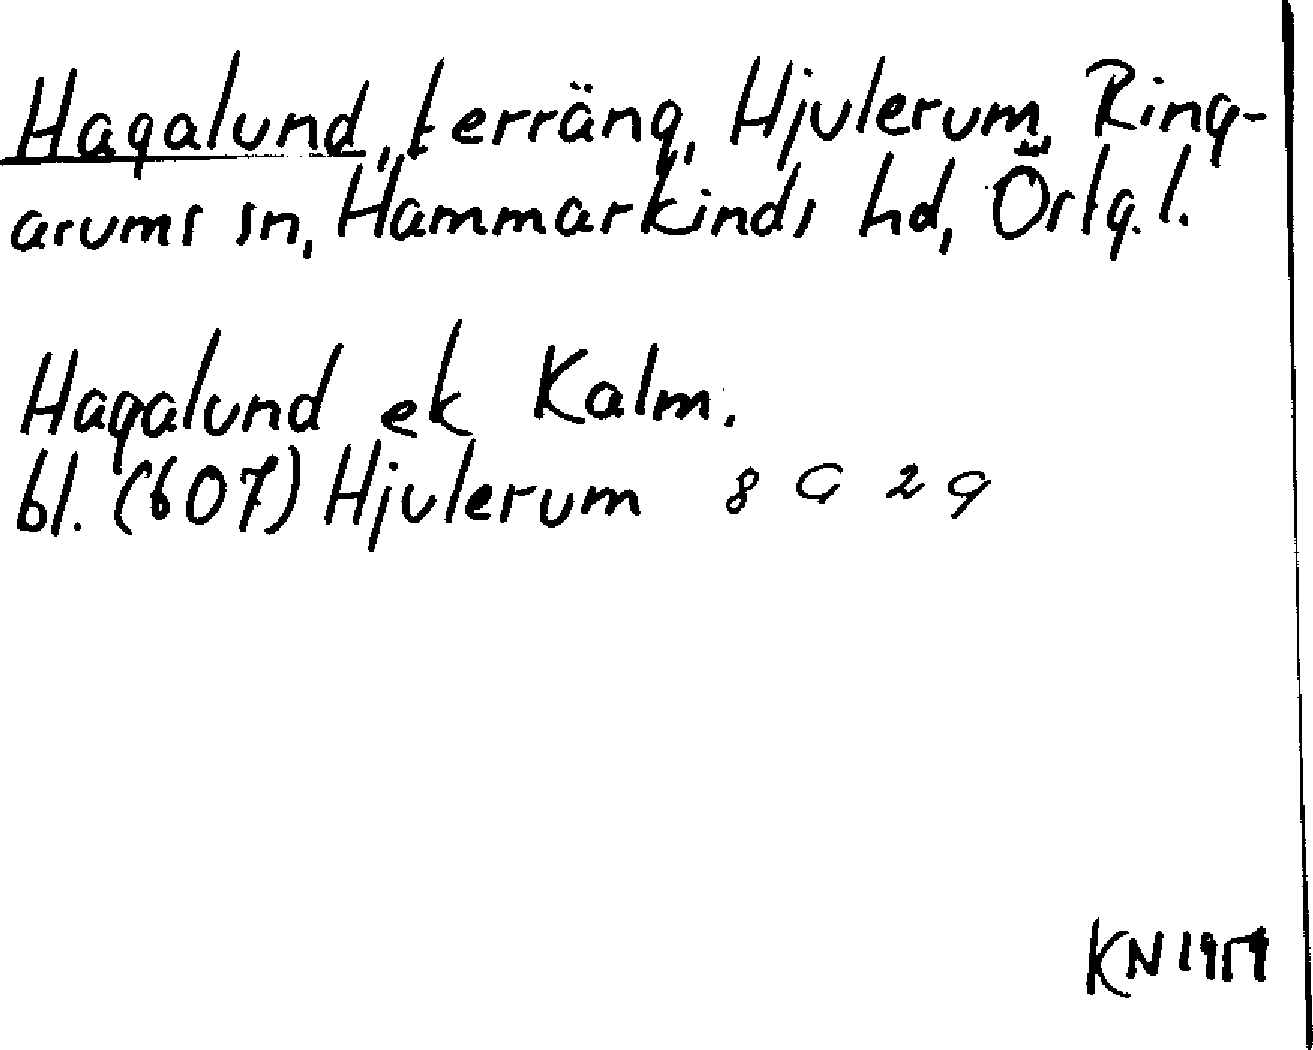 Hagalund, terräng, Hjulerum, Ring-
arums sn, Hammarkinds hd, Östg. l.
Hagalund ek Kalm.
bl. (607) Hjulerum 8 G 2 g
KN 1959